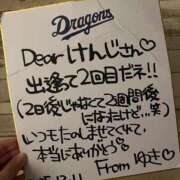 Dragons
Dear けんじさん♡
出逢って2回目だネ!!
(2日後じゃなくて2週間後
になったけど...笑)
いつもたのしませてくれて、
本当にありがとう
From ゆき